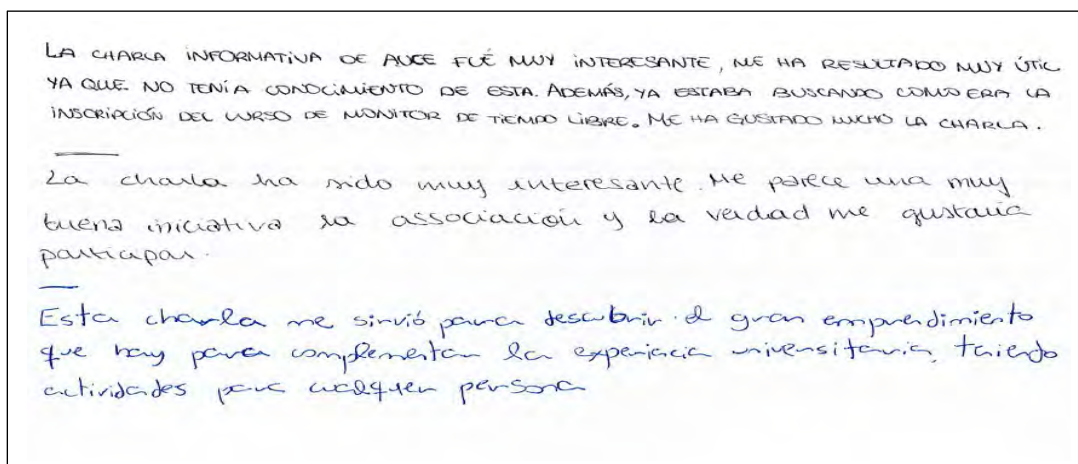 LA CHARLA INFORMATIVA DE AUCE FUÉ MUY INTERESANTE, ME HA RESULTADO MUY ÚTIL
YA QUE NO TENÍA CONOCIMIENTO DE ESTA. ADEMÁS, YA ESTABA BUSCANDO COMO ERA LA
INSCRIPCIÓN DEL CURSO DE MONITOR DE TIEMPO LIBRE. ME HA GUSTADO MUCHO LA CHARLA.
La charla ha sido muy interesante. Me parece una muy
buena iniciativa la associación y la verdad me gustaría
participar.
Esta charla me sirvió para descubrir el gran emprendimiento
que hay para complementar la experiacia universitaria, teniendo
actividades para cualquier persona